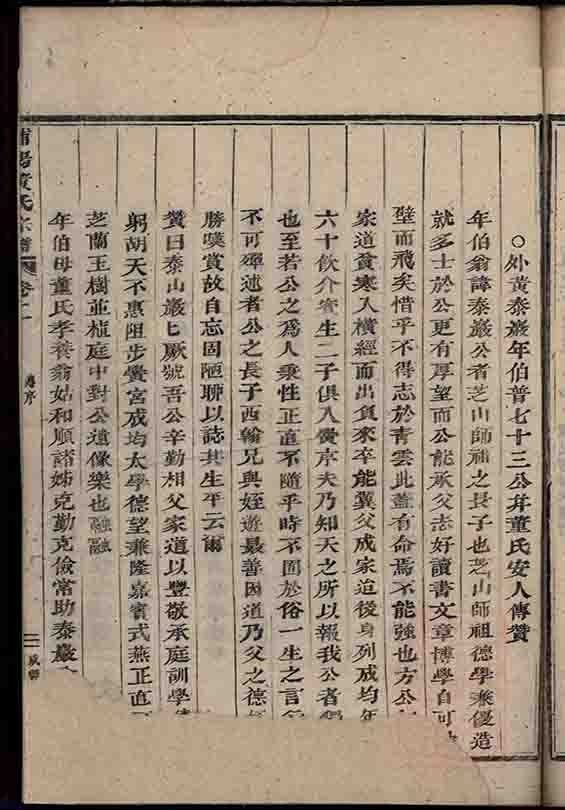 ○外黃泰巖年伯普七十三公并董氏安人傳贊
年伯翁諱泰巖公者芝山師祖之長子也芝山師祖德學兼優造
就多士於公更有厚望而公能承父志好讀書文章博學自可
壁而飛矣惜乎不得志於青雲此蓋有命焉不能強也方公
家道貧寒入橫經而出負耒卒能冀父成家迨後身列成均年
六十飲介賓生二子俱入黌序夫乃知天之所以報我公者
也至若公之爲人秉性正直不隨乎時不囿於俗一生之言
不可殫述者公之長子西翰兄與姪遊最善因道乃父之德
勝嘆賞故自忘固陋聯以誌其生平云爾
贊曰泰山巖巖厥號吾公辛勤相父家道以豐敬承庭訓學
躬胡天不惠阻步黌宮成均太學德望兼隆嘉賓式燕正直
芝蘭玉樹並植庭中對公遺像樂也融融
年伯母董氏孝養翁姑和順諸姊克勤克儉常助泰巖
黃氏宗譜
卷十一
傳序